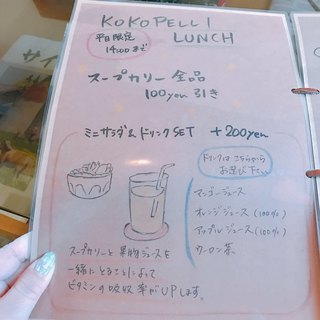 KOKOPELLI
LUNCH
平日限定
14:00まで
スープカリー 全品
100yen 引き
ミニサラダ& ドリンクSET +200yen
ドリンクは こちらから
お選び下さい
マンゴージュース
オレンジジュース (100%)
アップルジュース (100%)
ウーロン茶
スープカリーと 果物ジュースを
一緒に とることによって
ビタミンの吸収率がUPします。